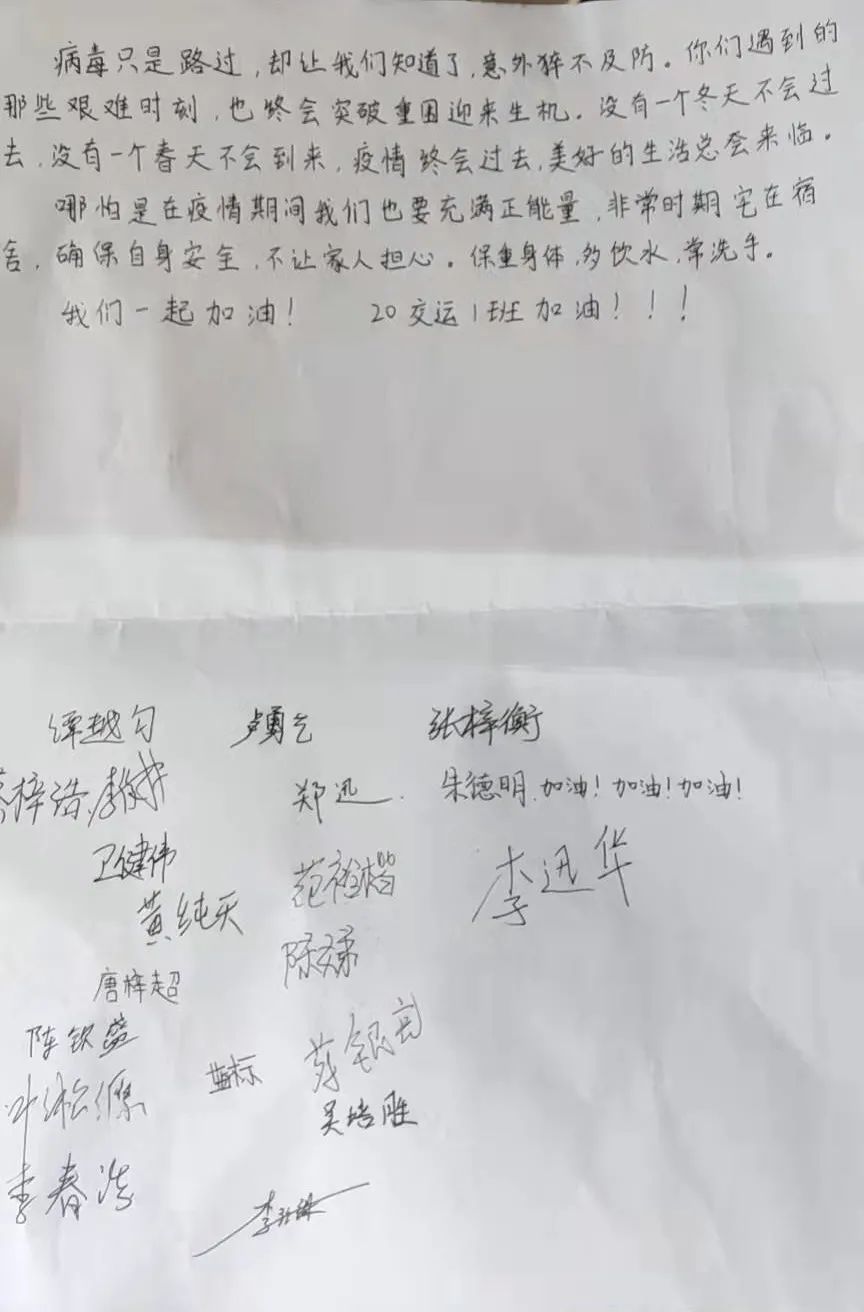 病毒只是路过，却让我们知道了，意外猝不及防。你们遇到的
那些艰难时刻，也终会突破重围迎来生机。没有一个冬天不会过
去，没有一个春天不会到来，疫情终会过去，美好的生活总会来临。
哪怕是在疫情期间我们也要充满正能量，非常时期宅在宿
舍，确保自身安全，不让家人担心。保重身体，多饮水，常洗手。
我们一起加油！ 20交运1班加油！！！
张梓衡
梓浩
郑迅
朱德明.加油！加油！加油！
卫健伟
范裕楷
李迅华
黄纯天
唐梓超
陈钦盛
吴培胜
李春浩